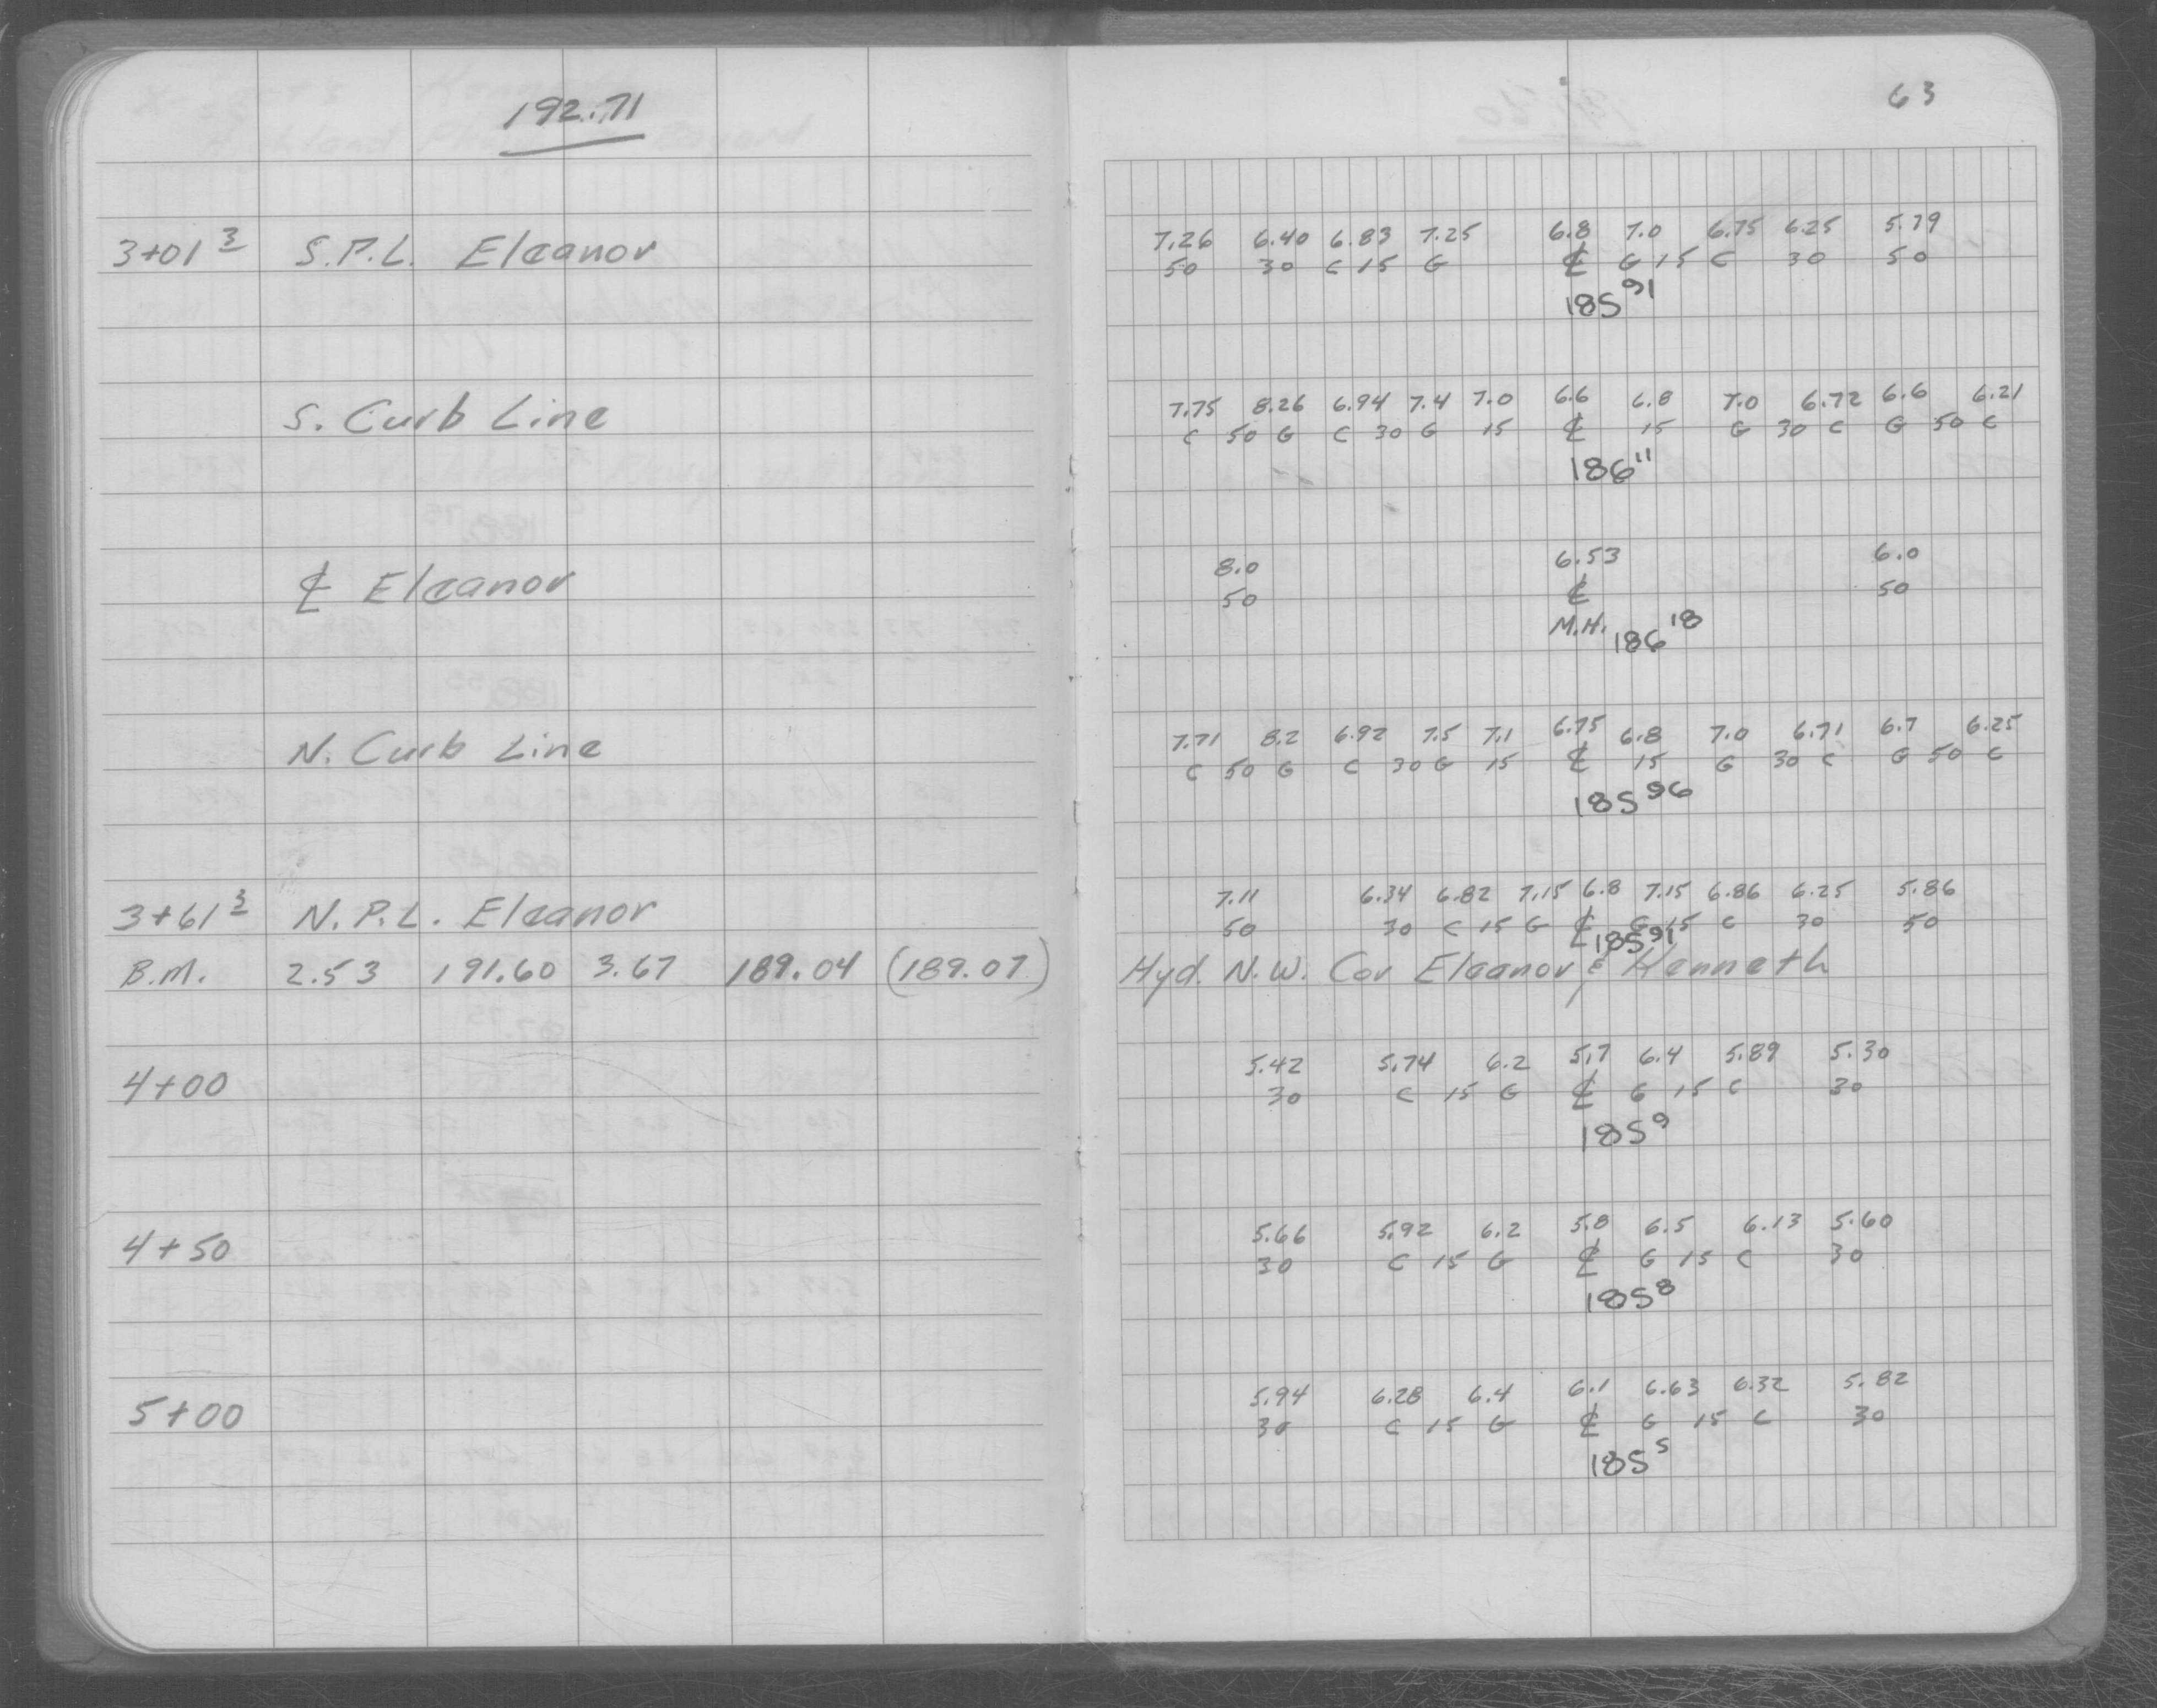 192.71
63
7.26 6.40 6.83 7.25 6.8 7.0 6.75 6.25 5.79
3+01 3 S.P.L. Eleanor 50 30 C 15 G ℄ G 15 C 30 50
185 91
7.75 8.26 6.94 7.4 7.0 6.6 6.8 7.0 6.72 6.6 6.21
S. Curb Line C 50 G C 30 G 15 ℄ 15 G 30 C G 50 C
186 11
8.0 6.53 6.0
℄ Eleanor 50 ℄ 50
M.H. 186 18
7.71 8.2 6.92 7.5 7.1 6.75 6.8 7.0 6.71 6.7 6.25
N. Curb Line C 50 G C 30 G 15 ℄ 15 G 30 C G 50 C
185 96
7.11 6.34 6.82 7.15 6.8 7.15 6.86 6.25 5.86
3+61 3 N.P.L. Eleanor 50 30 C 15 G ℄ G 15 C 30 50
185 91
B.M. 2.53 191.60 3.67 189.04 (189.07) Hyd. N.W. Cor Eleanor & Kenneth
5.42 5.74 6.2 5.7 6.4 5.89 5.30
4+00 30 C 15 G ℄ G 15 C 30
185 9
5.66 5.92 6.2 5.8 6.5 6.13 5.60
4+50 30 C 15 G ℄ G 15 C 30
185 8
5.94 6.28 6.4 6.1 6.63 6.32 5.82
5+00 30 C 15 G ℄ G 15 C 30
185 5